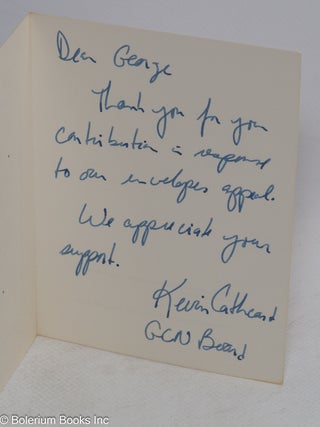 Dear George
Thank you for your
contribution in response
to our envelopes appeal.
We appreciate your
support.
Kevin Cathcart
GCN Board
© Bolerium Books Inc